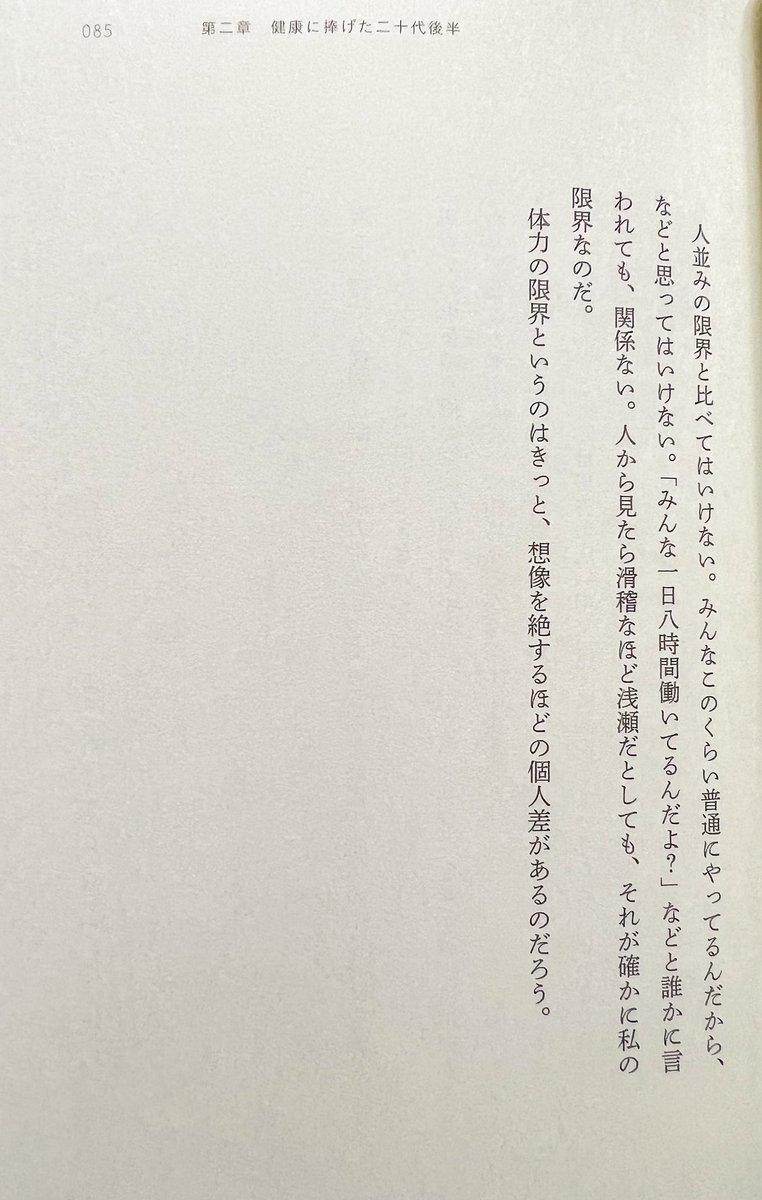 085
第二章　健康に捧げた二十代後半
人並みの限界と比べてはいけない。みんなこのくらい普通にやってるんだから、
などと思ってはいけない。「みんな一日八時間働いてるんだよ？」などと誰かに言
われても、関係ない。人から見たら滑稽なほど浅瀬だとしても、それが確かに私の
限界なのだ。
体力の限界というのはきっと、想像を絶するほどの個人差があるのだろう。